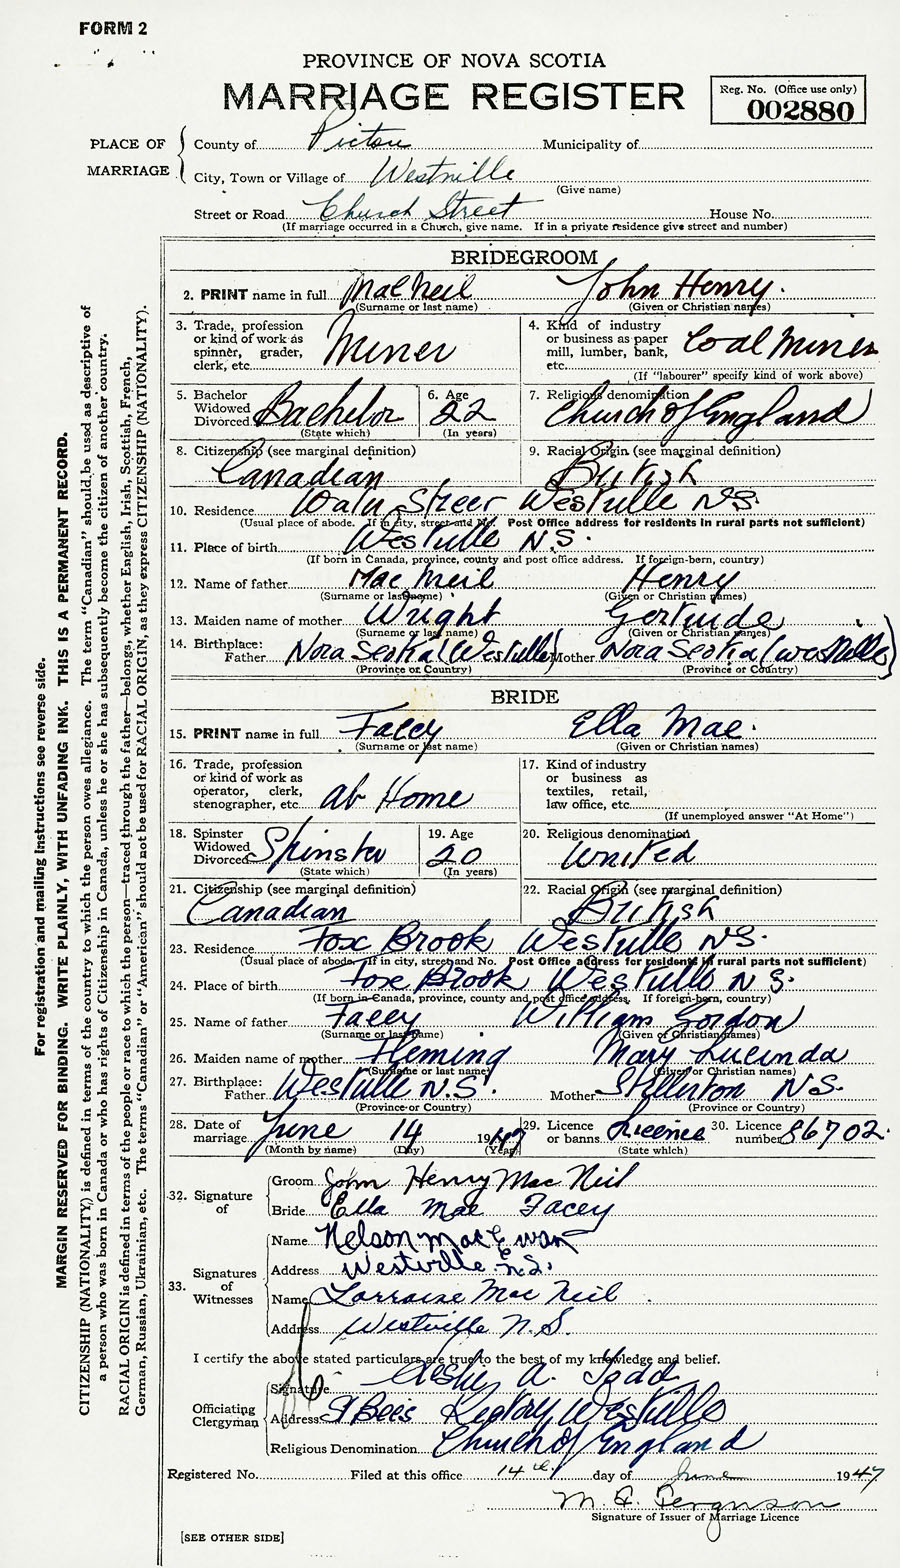 FORM 2
PROVINCE OF NOVA SCOTIA
MARRIAGE REGISTER
Reg. No. (Office use only)
002880
PLACE OF MARRIAGE
County of Pictou Municipality of
City, Town or Village of Westville
(Give name)
Street or Road Church Street House No.
(If marriage occurred in a Church, give name. If in a private residence give street and number)
BRIDEGROOM
2. PRINT name in full MacNeil John Henry.
(Surname or last name) (Given or Christian names)
3. Trade, profession or kind of work as spinner, grader, clerk, etc. Miner
4. Kind of industry or business as paper mill, lumber, bank, etc. Coal Mines
(If "labourer" specify kind of work above)
5. Bachelor Widowed Divorced Bachelor
(State which)
6. Age 22
(In years)
7. Religious denomination Church of England
8. Citizenship (see marginal definition) Canadian
9. Racial Origin (see marginal definition) British
10. Residence Street Westville N.S.
(Usual place of abode. If in city, street and No. Post Office address for residents in rural parts not sufficient)
11. Place of birth Westville N.S.
(If born in Canada, province, county and post office address. If foreign-born, country)
12. Name of father MacNeil Henry
(Surname or last name) (Given or Christian names)
13. Maiden name of mother Wright Gertrude
(Surname or last name) (Given or Christian names)
14. Birthplace: Father Nova Scotia (Westville) Mother Nova Scotia (Westville)
(Province or Country) (Province or Country)
BRIDE
15. PRINT name in full Facey Ella Mae.
(Surname or last name) (Given or Christian names)
16. Trade, profession or kind of work as operator, clerk, stenographer, etc. at Home
17. Kind of industry or business as textiles, retail, law office, etc.
(If unemployed answer "At Home")
18. Spinster Widowed Divorced Spinster
(State which)
19. Age 20
(In years)
20. Religious denomination United
21. Citizenship (see marginal definition) Canadian
22. Racial Origin (see marginal definition) British
23. Residence Fox Brook Westville N.S.
(Usual place of abode. If in city, street and No. Post Office address for residents in rural parts not sufficient)
24. Place of birth Fox Brook Westville N.S.
(If born in Canada, province, county and post office address. If foreign-born, country)
25. Name of father Facey William Gordon
(Surname or last name) (Given or Christian names)
26. Maiden name of mother Fleming Mary Lucinda
(Surname or last name) (Given or Christian names)
27. Birthplace: Father Westville N.S. Mother Stellerton N.S.
(Province or Country) (Province or Country)
28. Date of marriage June 14 1947
(Month by name) (Day) (Year)
29. Licence or banns Licence
(State which)
30. Licence number 86702.
32. Signature of
Groom John Henry MacNeil
Bride Ella Mae Facey
33. Signatures of Witnesses
Name Nelson MacEwan
Address Westville N.S.
Name Lorraine MacNeil
Address Westville N.S.
I certify the above stated particulars are true to the best of my knowledge and belief.
Officiating Clergyman
Signature A. Todd
Address St Bees Rectory, Westville
Religious Denomination Church of England
Registered No. Filed at this office 14th day of June 1947
M. Ferguson
Signature of Issuer of Marriage Licence
[SEE OTHER SIDE]
For registration and mailing instructions see reverse side.
MARGIN RESERVED FOR BINDING. WRITE PLAINLY, WITH UNFADING INK. THIS IS A PERMANENT RECORD.
CITIZENSHIP (NATIONALITY) is defined in terms of the country to which the person owes allegiance. The term "Canadian" should be used as descriptive of
a person who was born in Canada or who has rights of Citizenship in Canada, unless he or she has subsequently become the citizen of another country.
RACIAL ORIGIN is defined in terms of the people or race to which the person—traced through the father—belongs, whether English, Irish, Scottish, French,
German, Russian, Ukrainian, etc. The terms "Canadian" or "American" should not be used for RACIAL ORIGIN, as they express CITIZENSHIP (NATIONALITY).